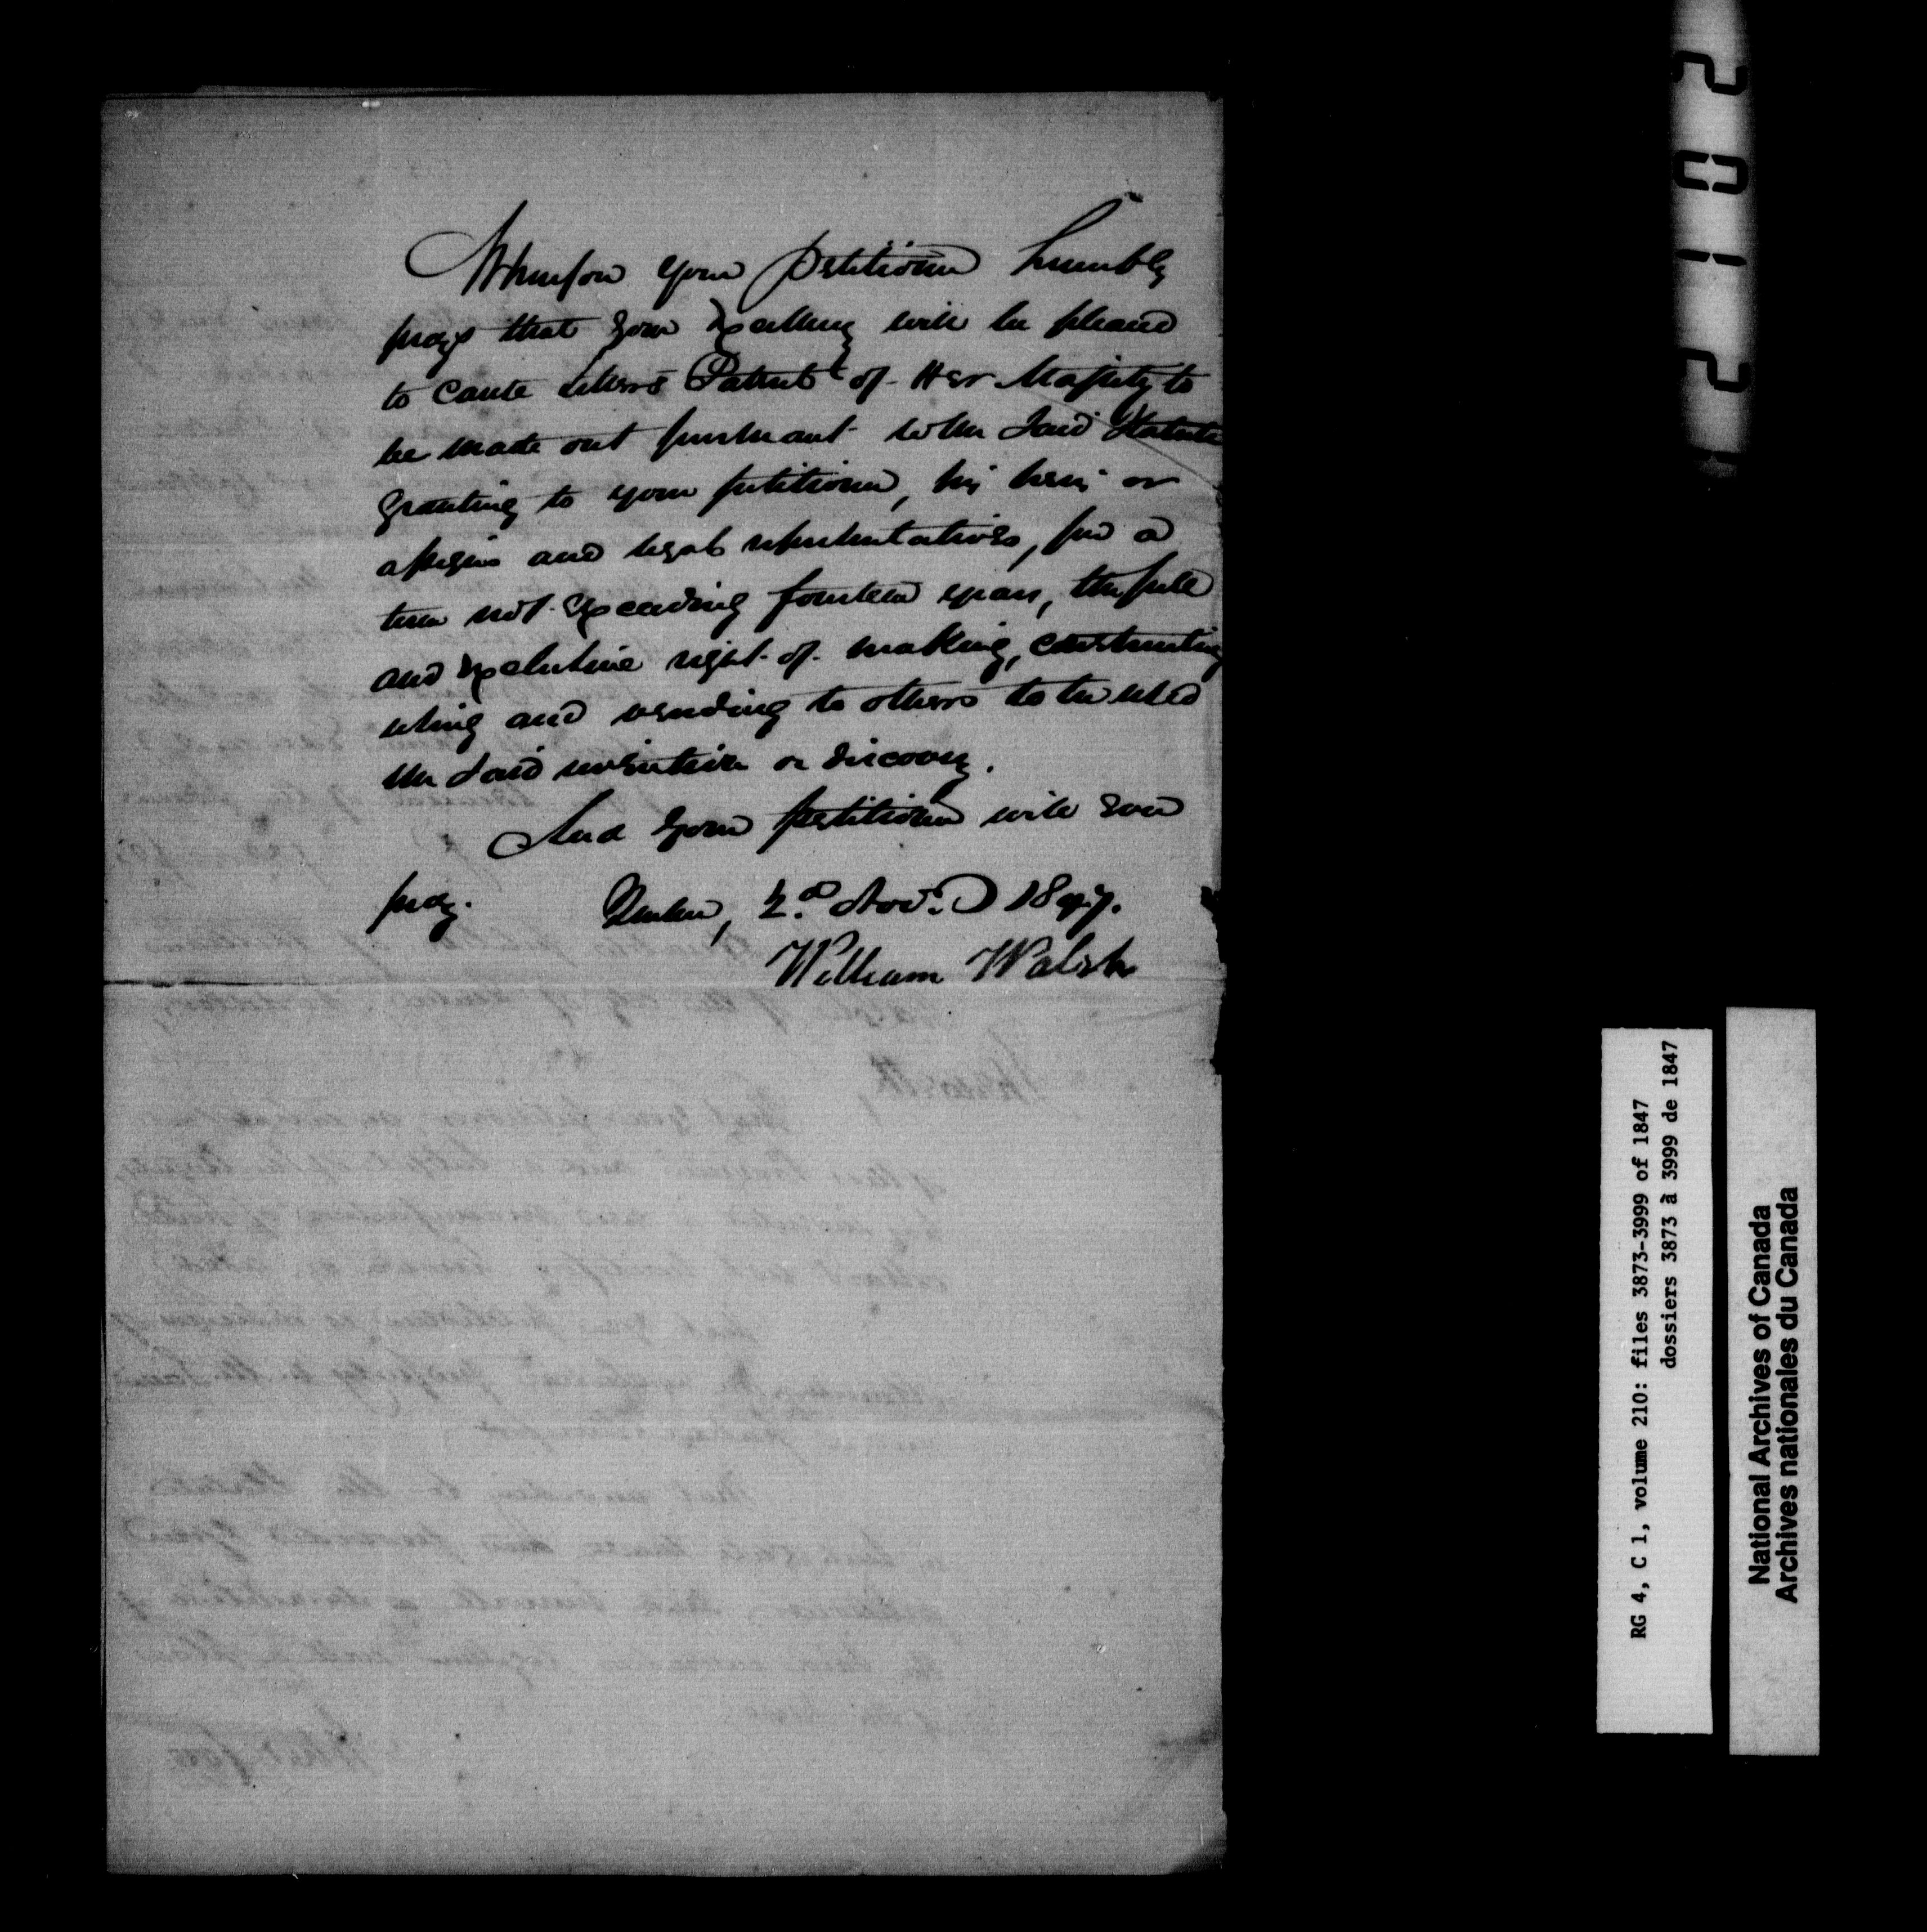 Wherefore your petitioner humbly
prays that your Excellency will be pleased
to cause letters Patent of Her Majesty to
be made out pursuant to the said Statute
granting to your petitioner, his heirs or
assigns and legal representatives, for a
term not exceeding fourteen years, the full
and exclusive right of making, constructing
using and vending to others to be used
the said invention or discovery.
And your petitioner will ever
pray.
Quebec, 2d Novr. 1847.
William Walsh
2012
RG 4, C 1, volume 210: files 3873-3999 of 1847
dossiers 3873 à 3999 de 1847
National Archives of Canada
Archives nationales du Canada